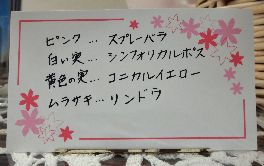 ピンク … スプレーバラ
白い実 … シンフォリカルポス
黄色の実 … コニカルイエロー
ムラサキ … リンドウ